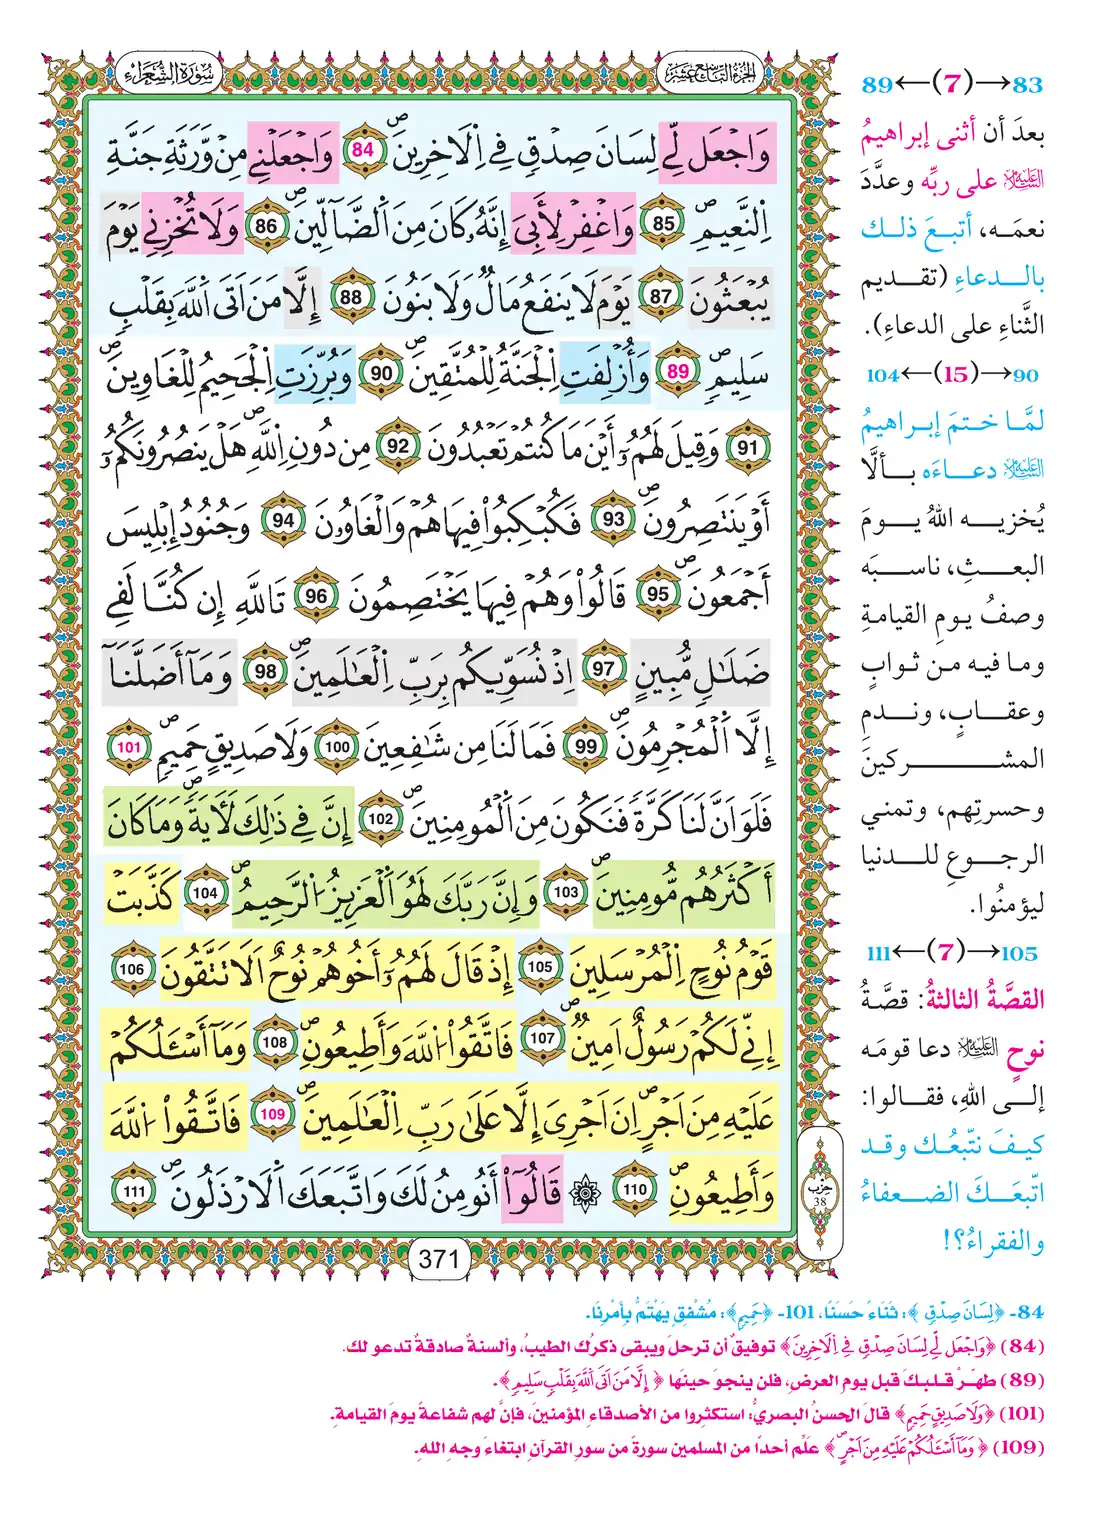 الجزء التاسع عشر
سورة الشعراء
وَاجْعَل لِّے لِسَانَ صِدْقٖ فِے اِلَاخِرِينَۖ 84 وَاجْعَلْنِے مِنْ وَّرَثَةِ جَنَّةِ
اِلنَّعِيمِۖ 85 وَاغْفِرْ لِأَبِيَ إِنَّهُۥ كَانَ مِنَ اَلضَّآلِّينَۖ 86 وَلَا تُخْزِنِے يَوْمَ
يُبْعَثُونَ 87 يَوْمَ لَا يَنفَعُ مَالٌ وَلَا بَنُونَ 88 إِلَّا مَنَ اَتَى اَللَّهَ بِقَلْبٖ
سَلِيمٖۖ 89 وَأُزْلِفَتِ اِلْجَنَّةُ لِلْمُتَّقِينَۖ 90 وَبُرِّزَتِ اِلْجَحِيمُ لِلْغَاوِينَۖ
91 وَقِيلَ لَهُمُۥٓ أَيْنَ مَا كُنتُمْ تَعْبُدُونَ 92 مِن دُونِ اِللَّهِۖ هَلْ يَنصُرُونَكُمُۥٓ
أَوْ يَنتَصِرُونَۖ 93 فَكُبْكِبُواْ فِيهَا هُمْ وَالْغَاوُۥنَ 94 وَجُنُودُ إِبْلِيسَ
أَجْمَعُونَۖ 95 قَالُواْ وَهُمْ فِيهَا يَخْتَصِمُونَ 96 تَاللَّهِ إِن كُنَّا لَفِے
ضَلَٰلٖ مُّبِينٍ 97 اِذْ نُسَوِّيكُم بِرَبِّ اِلْعَٰلَمِينَۖ 98 وَمَآ أَضَلَّنَآ
إِلَّا اَلْمُجْرِمُونَۖ 99 فَمَا لَنَا مِن شَٰفِعِينَ 100 وَلَا صَدِيقٍ حَمِيمٖۖ 101
فَلَوَ اَنَّ لَنَا كَرَّةٗ فَنَكُونَ مِنَ اَلْمُومِنِينَۖ 102 إِنَّ فِے ذَٰلِكَ لَأٓيَةٗۖ وَمَا كَانَ
أَكْثَرُهُم مُّومِنِينَۖ 103 وَإِنَّ رَبَّكَ لَهُوَ اَلْعَزِيزُ اُلرَّحِيمُۖ 104 كَذَّبَتْ
قَوْمُ نُوحٍ اِلْمُرْسَلِينَ 105 إِذْ قَالَ لَهُمُۥٓ أَخُوهُمْ نُوحٌ اَلَا تَتَّقُونَ 106
إِنِّے لَكُمْ رَسُولٌ اَمِينٌۖ 107 فَاتَّقُواْ اُللَّهَ وَأَطِيعُونِۖ 108 وَمَآ أَسْـَٔلُكُمْ
عَلَيْهِ مِنَ اَجْرٍۖ اِنَ اَجْرِيَ إِلَّا عَلَىٰ رَبِّ اِلْعَٰلَمِينَۖ 109 فَاتَّقُواْ اُللَّهَ
وَأَطِيعُونِۖ 110 ۞ قَالُوٓاْ أَنُومِنُ لَكَ وَاتَّبَعَكَ اَلَارْذَلُونَۖ 111
حزب
38
371
83→(7)←89
بعدَ أن أثنى إبراهيمُ
عليه السلام على ربِّه وعدَّدَ
نعمَه، أتبعَ ذلك
بالدعاءِ (تقديم
الثَّناءِ على الدعاءِ).
90→(15)←104
لمَّا ختمَ إبراهيمُ
عليه السلام دعاءَه بألَّا
يُخزيه اللهُ يومَ
البعثِ، ناسبَه
وصفُ يومِ القيامةِ
وما فيه من ثوابٍ
وعقابٍ، وندمِ
المشركينَ
وحسرتِهم، وتمني
الرجوعِ للدنيا
ليؤمنُوا.
105→(7)←111
القصَّةُ الثالثةُ: قصَّةُ
نوحٍ عليه السلام دعا قومَه
إلى اللهِ، فقالوا:
كيفَ نتّبعُك وقد
اتّبعَكَ الضعفاءُ
والفقراءُ؟!
84- ﴿لِسَانَ صِدْقٖ﴾: ثَنَاءً حَسَنًا، 101- ﴿حَمِيمٖ﴾: مُشْفِقٍ يَهْتَمُّ بِأَمْرِنَا.
(84) ﴿وَاجْعَل لِّے لِسَانَ صِدْقٖ فِے اِلَاخِرِينَ﴾ توفيقٌ أن ترحلَ ويبقى ذكرُك الطيبُ، وألسنةٌ صادقةٌ تدعو لك.
(89) طهّرْ قلبكَ قبل يومِ العرضِ، فلن ينجوَ حينَها ﴿إِلَّا مَنَ اَتَى اَللَّهَ بِقَلْبٖ سَلِيمٖ﴾.
(101) ﴿وَلَا صَدِيقٍ حَمِيمٖ﴾ قالَ الحسنُ البصريُّ: استكثِروا من الأصدقاءِ المؤمنينَ، فإنَّ لهم شفاعةً يومَ القيامةِ.
(109) ﴿وَمَآ أَسْـَٔلُكُمْ عَلَيْهِ مِنَ اَجْرٍۖ﴾ علِّم أحداً من المسلمين سورةً من سورِ القرآنِ ابتغاءَ وجهِ اللهِ.